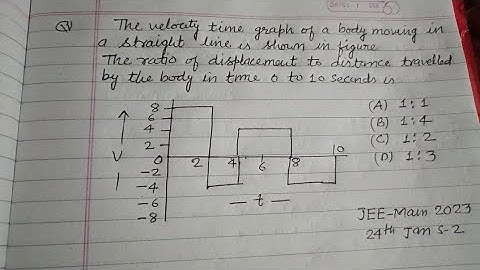 Q) The velocity time graph of a body moving in
a straight line is shown in figure
The ratio of displacement to distance travelled
by the body in time 0 to 10 seconds is
(A) 1:1
(B) 1:4
(C) 1:2
(D) 1:3
8
6
4
2
0
-2
-4
-6
-8
V
2 4 6 8 10
- t -
JEE-Main 2023
24th Jan S-2